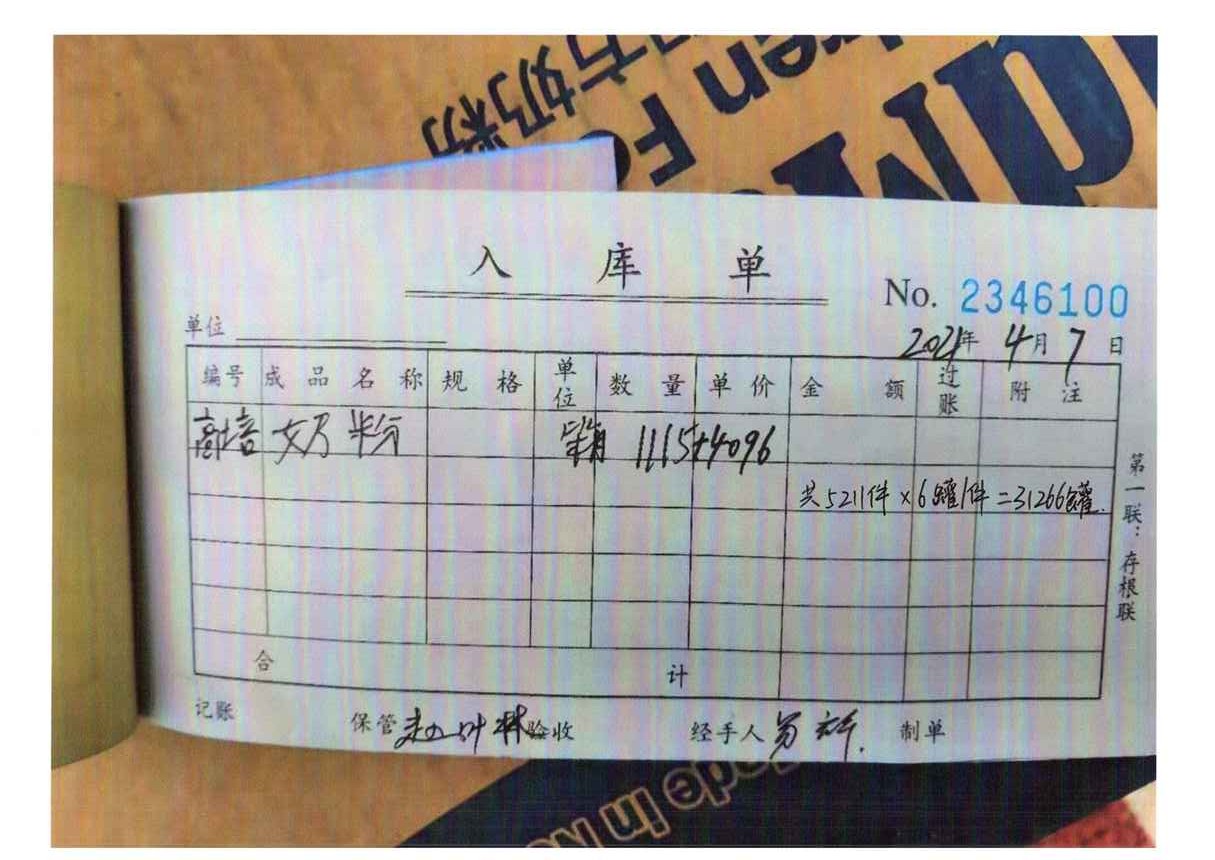 方奶粉
入库单
No. 2346100
单位
2021年 4月 7日
编号 成品名称 规格 单位 数量 单价 金额 过账 附注
高培 奶粉 箱 1115+4096
共5211件×6罐/件=31266罐.
合计
第一联：存根联
记账 保管 赵叶林 验收 经手人 制单
Made in